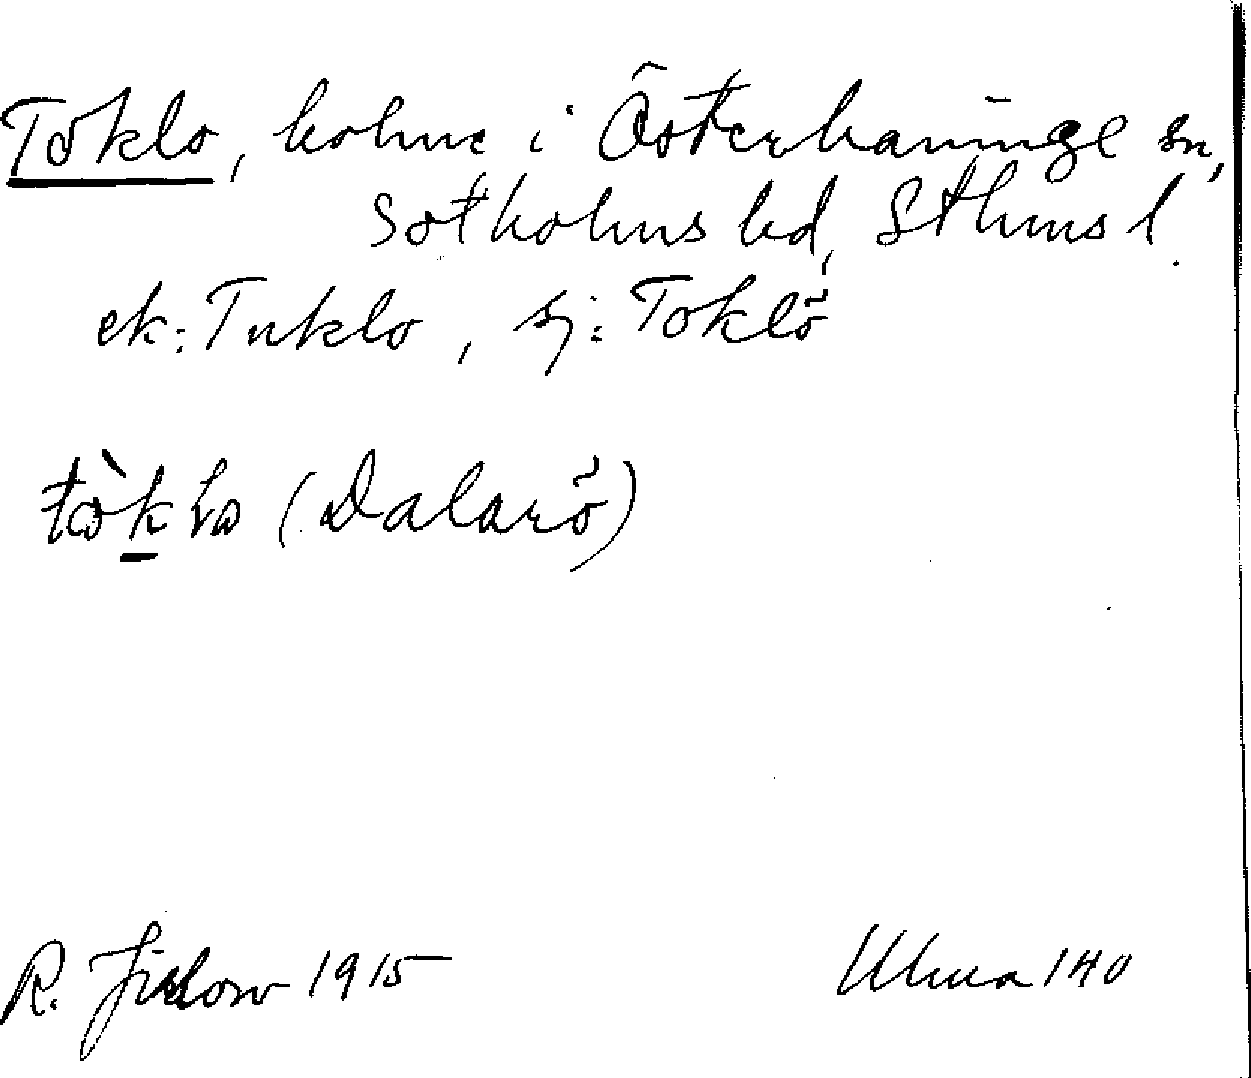 Toklo, holme i Österhaninge sn,
Sotholms hd, Sthms l.
ek: Tuklo, sj: Toklö
(Dalarö)
R. Jirlow 1915 Ulma 140